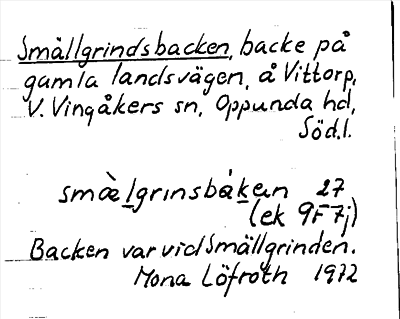 Smällgrindsbacken, backe på
gamla landsvägen, å Vittorp,
V. Vingåkers sn, Oppunda hd,
Söd.l.
smæ̀lgrınsbákan 27
(ek 9F7j)
Backen var vid Smällgrinden.
Mona Löfroth 1972